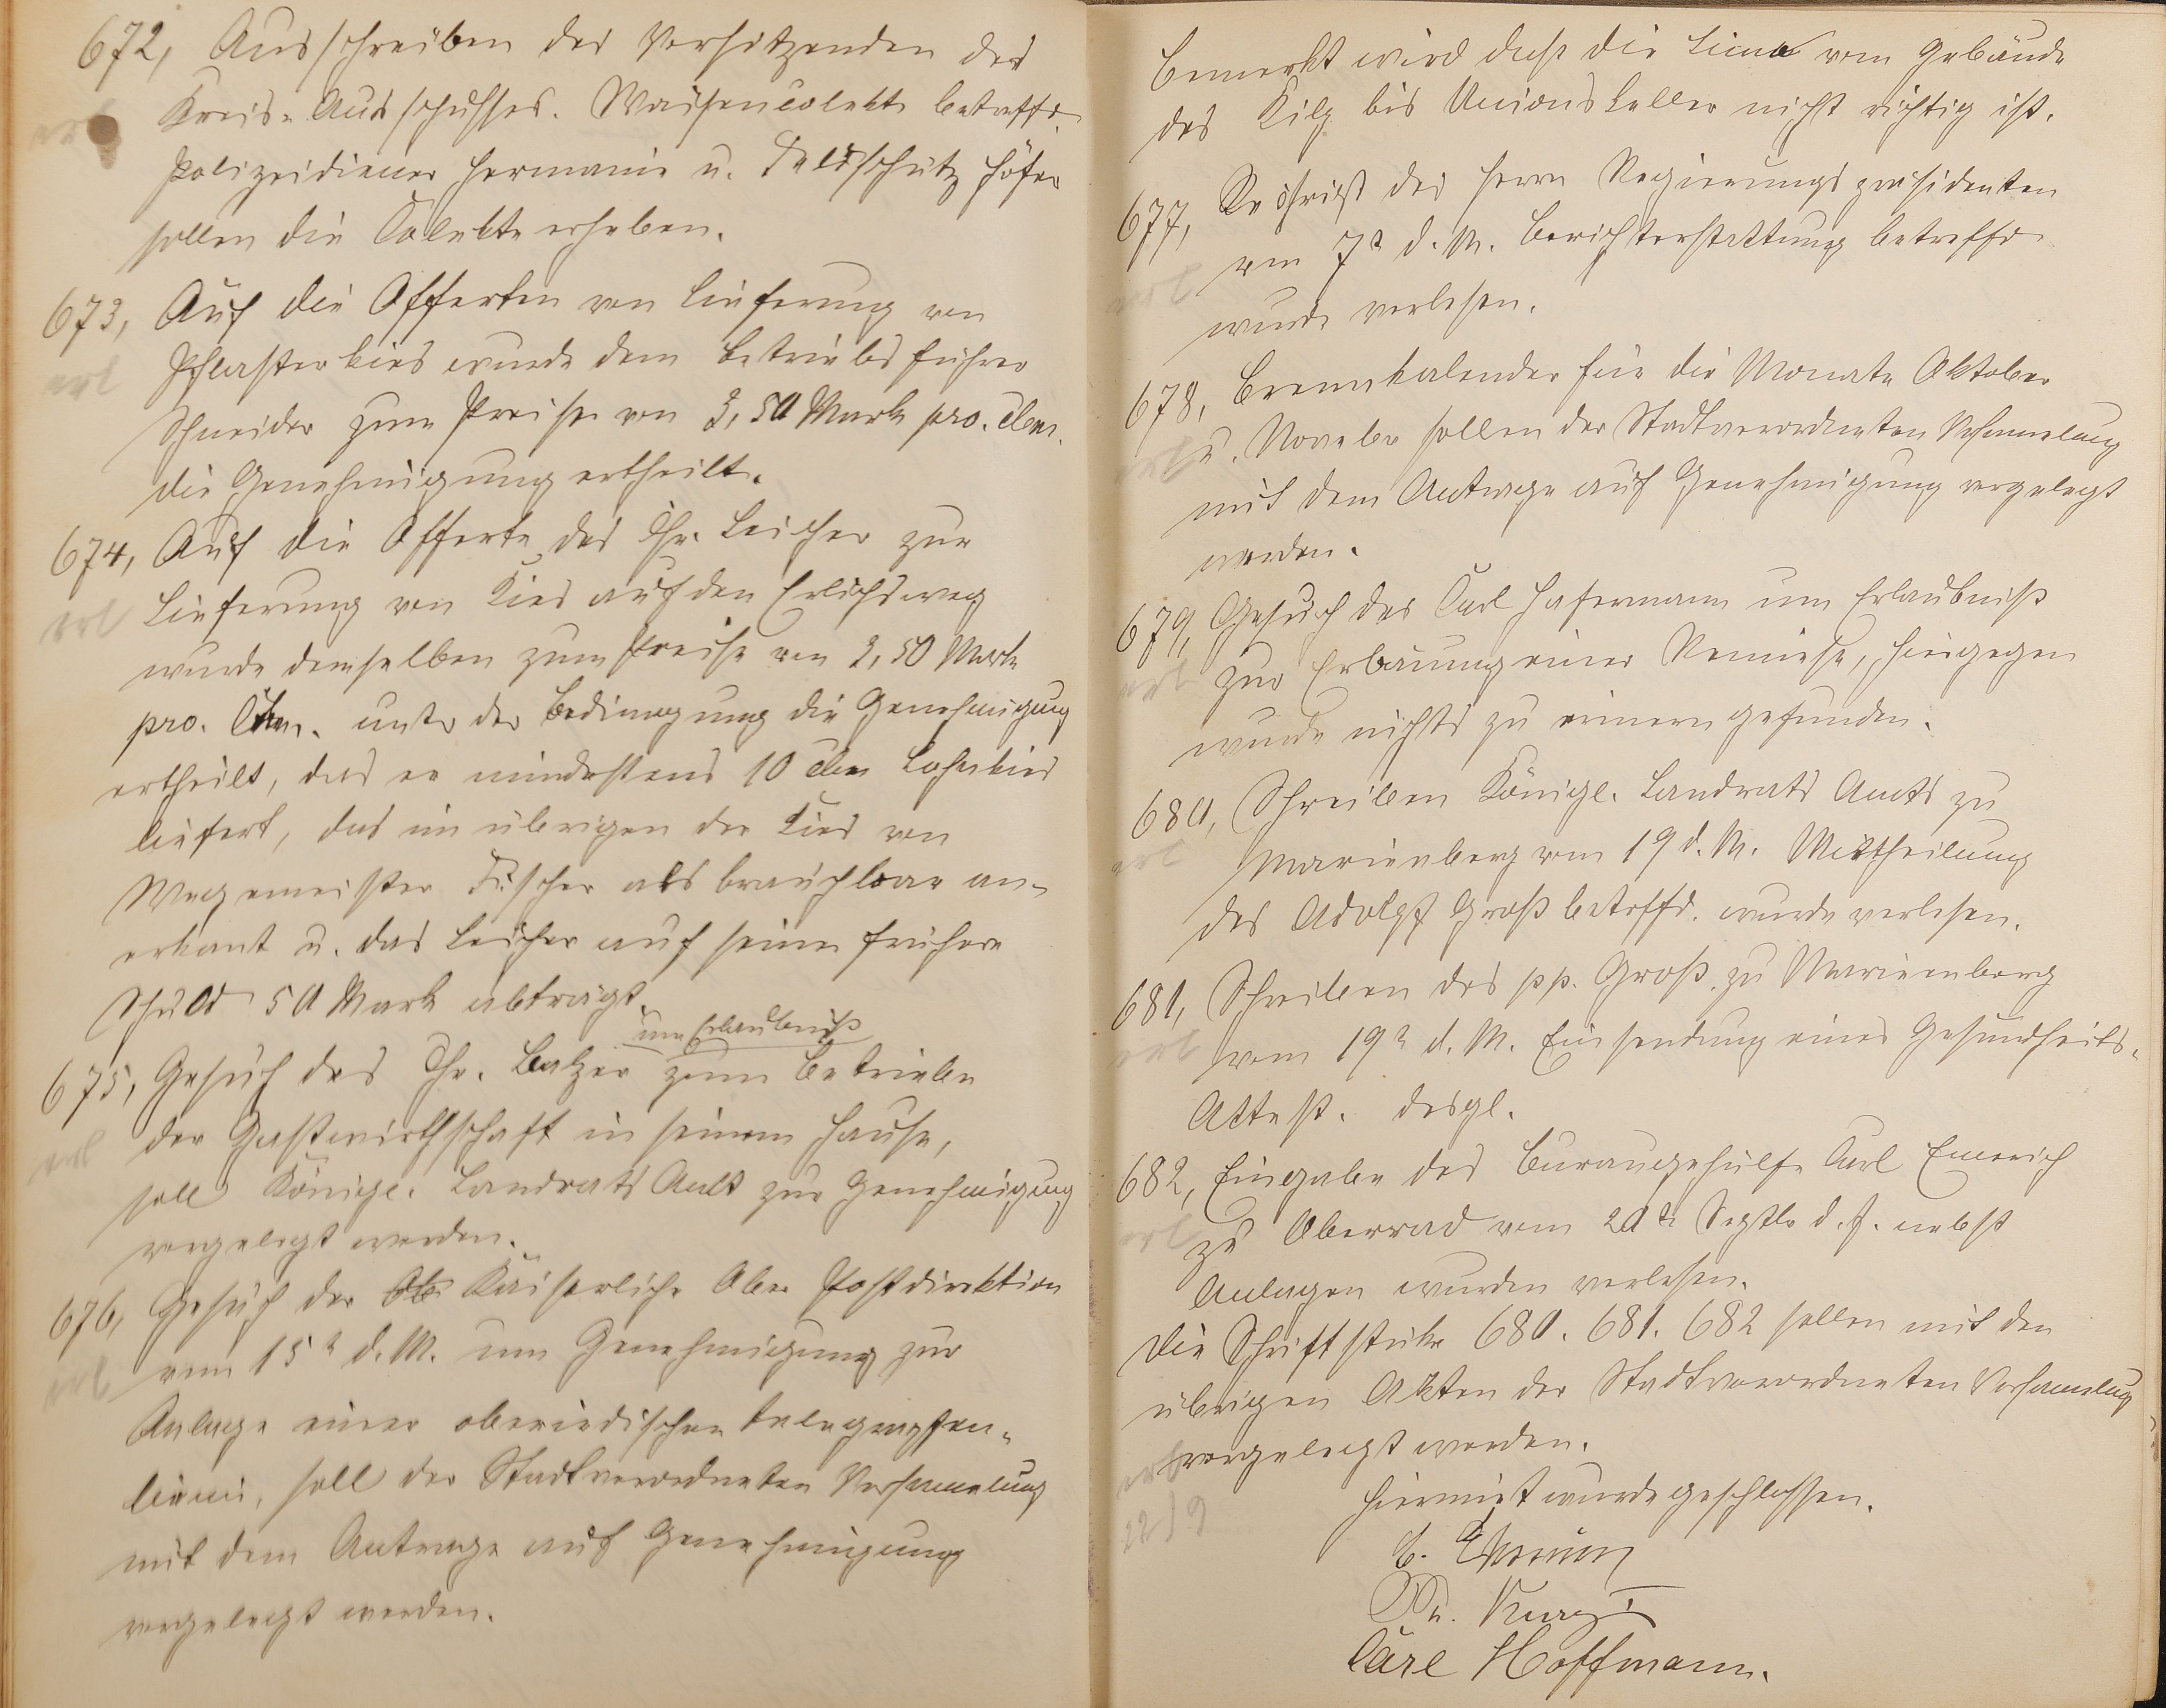 672, Ausschreiben des Vorsitzenden des
erl Kreis-Ausschusses. Waisencolekte betreffd.
Polizeidiener Hermanie u. Feldschütz Höfer
sollen die Colekte erheben.
673, Auf die Offerten von Lieferung von
erl Pflasterkies wurde dem Betriebsführer
Schneider zum Preise von 3,50 Mark pro. Cbm.
die Genehmigung ertheilt.
674, Auf die Offerte des Chr. Leicher zur
erl Lieferung von Kies auf den Erlichsweg
wurde demselben zum Preise von 2,50 Mark
pro. Cbm. unter der Bedingung die Genehmigung
ertheilt, das er mindestens 10 Cbm Lahnkies
liefert, das im übrigen der Kies von
Wegemeister Fischer als brauchbar an-
erkant u. das Leicher auf seine frühere
Schuld 50 Mark abträgt.
um Erlaubniß
675, Gesuch des Chr. Balzer zum Betriebe
erl der Gastwirthschaft in seinem Hause,
soll Königl. Landrats Amt zur Genehmigung
vorgelegt werden.
676, Gesuch der Ob Kaiserliche Ober Postdirektion
erl vom 15t d. M. um Genehmigung zur
Anlage einer oberirdischen Telegraphen-
linie, soll der Stadtverordneten Versammelung
mit dem Antrage auf Genehmigung
vorgelegt werden.
Bemerkt wird daß die Linie vom Gebäude
des Kilp bis Unionskeller nicht richtig ist.
677, Reskript des Herrn Regierungspräsidenten
erl vom 7t d. M. Berichterstattung betreffd
wurde verlesen.
678, Brennkalender für die Monate Oktober
erl u. Novembr sollen der Stadtverordneten Vrsammelung
mit dem Antrage auf Genehmigung vorgelegt
werden.
679, Gesuch des Carl Hafermann um Erlaubniß
erl zur Erbauung einer Remiese, hiergegen
wurde nichts zu erinern gefunden.
680, Schreiben Königl. Landrats Amts zu
erl Marienberg vom 19 d. M. Mittheilung
des Adolpf Groß betreffd. wurde verlesen.
681, Schreiben des pp. Groß zu Marienberg
erl vom 19t d. M. Einsendung eines Gesundheits-
Attest. desgl.
682, Eingabe des Buraugehülfe Carl Emerich
erl zu Oberrad vom 20t Septbr d. J. nebst
Anlagen wurden verlesen.
Die Schriftstüke 680. 681. 682 sollen mit den
übrigen Akten der Stadtverordneten Versamelug
erl vorgelegt werden.
22/9 Hiermit wurde geschlossen.
Carl Hoffmann.